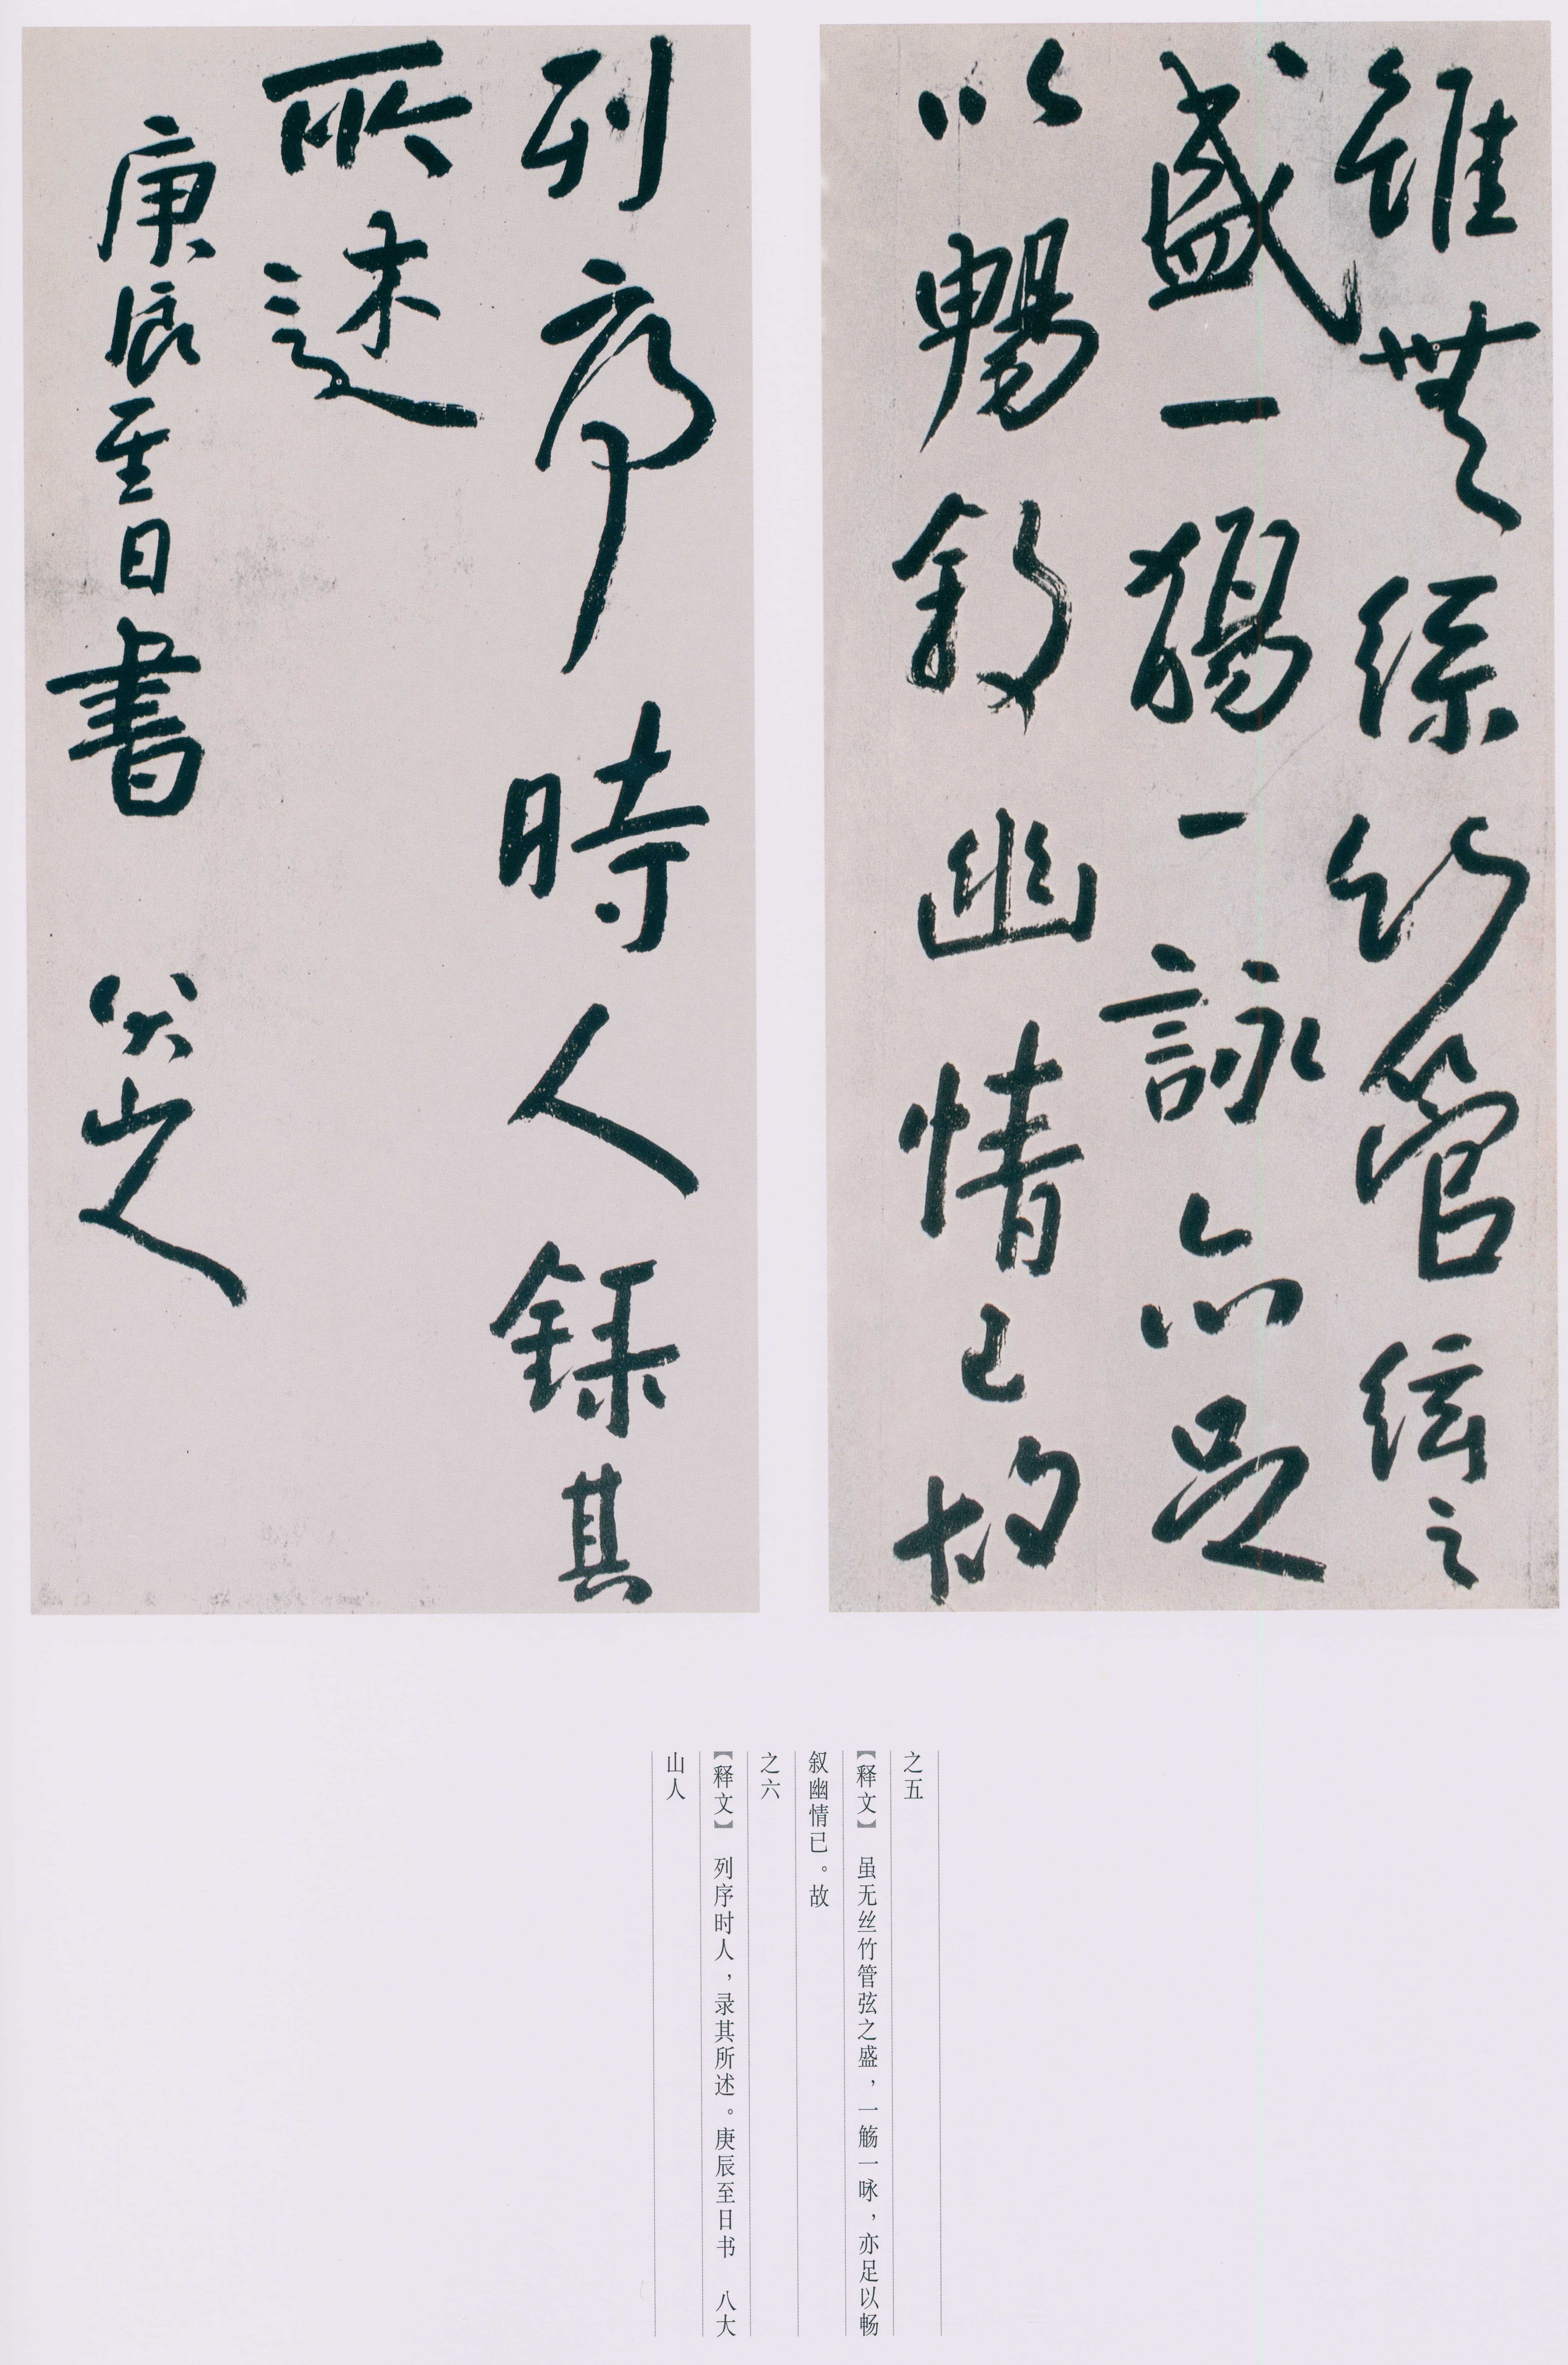 雖無絲竹管絃之
盛一觴一詠亦足
以暢敘幽情已故
列序時人録其
所述
庚辰至日書 八大山人
之五
【释文】 虽无丝竹管弦之盛，一觞一咏，亦足以畅
叙幽情已。故
之六
【释文】 列序时人，录其所述。庚辰至日书 八大
山人